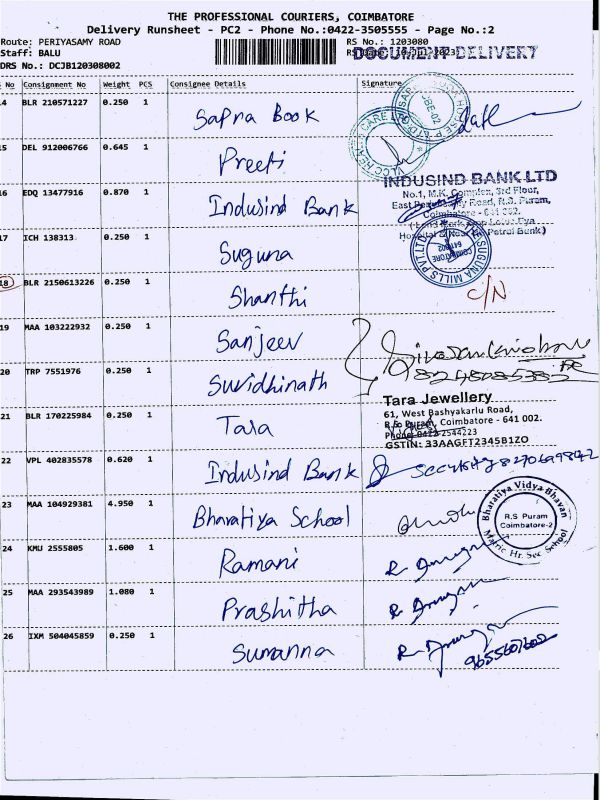 THE PROFESSIONAL COURIERS, COIMBATORE
Delivery Runsheet - PC2 - Phone No.:0422-3505555 - Page No.:2
Route: PERIYASAMY ROAD RS No.: 1203080
Staff: BALU DOCUMENT DELIVERY
DRS No.: DCJB120308002
No Consignment No Weight PCS Consignee Details Signature
14 BLR 210571227 0.250 1 Sapna Book
15 DEL 912006766 0.645 1 Preeti
INDUSIND BANK LTD
No.1, M.K. Complex, 3rd Floor,
16 EDQ 13477916 0.870 1 Indusind Bank
17 ICH 138313 0.250 1 Suguna SUGUNA MILLS PVT.LTD
18 BLR 2150613226 0.250 1 Shanthi C/N
19 MAA 103222932 0.250 1 Sanjeev
20 TRP 7551976 0.250 1 Suvidhinath
Tara Jewellery
61, West Bashyakarlu Road,
21 BLR 170225984 0.250 1 Tara R.S Puram, Coimbatore - 641 002.
Phone: 0422-2544223
GSTIN: 33AAGFT2345B1ZO
22 VPL 402835578 0.620 1 Indusind Bank
23 MAA 104929381 4.950 1 Bharatiya School
Bharatiya Vidya Bhavan
R.S Puram
Coimbatore-2
Matric Hr. Sec School
24 KMU 2555805 1.600 1 Ramani
25 MAA 293543989 1.080 1 Prashitha
26 IXM 504045859 0.250 1 Sumanna